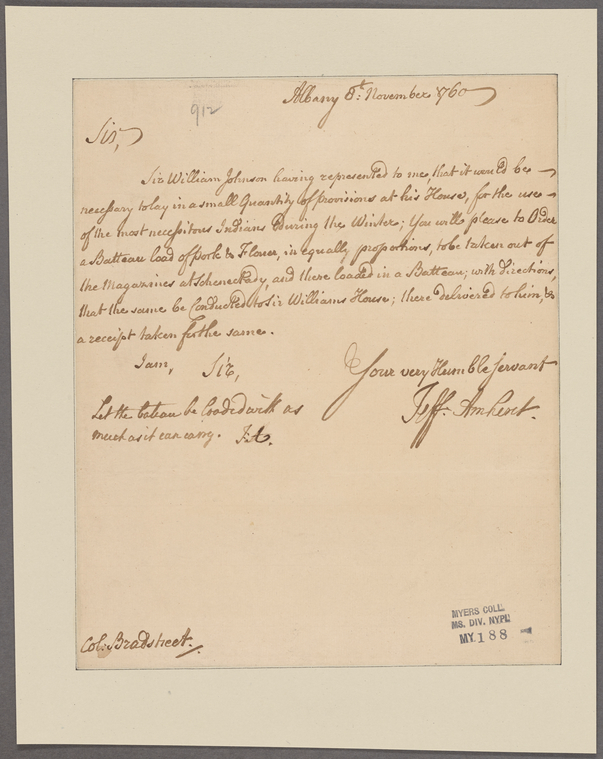 912
Albany 8t. November 1760
Sir,
Sir William Johnson having represented to me, that it would be
necessary to lay in a small Quantity of provisions at his House, for the use
of the most necessitous Indians During the Winter; You will please to Order
a Batteau load of pork & Flower, in equally proportions, to be taken out of
the Magazines at Schenectady, and there loaded in a Batteau; with directions,
that the same be Conducted to Sir Williams House; there delivered to him, &
a receipt taken for the same.
I am, Sir,
Your very Humble Servant
Jeff. Amherst.
Let the bateau be loaded with as
much as it can carry. J:A.
Col: Bradstreet.
MYERS COLL.
MS. DIV. NYPL
MY. 188